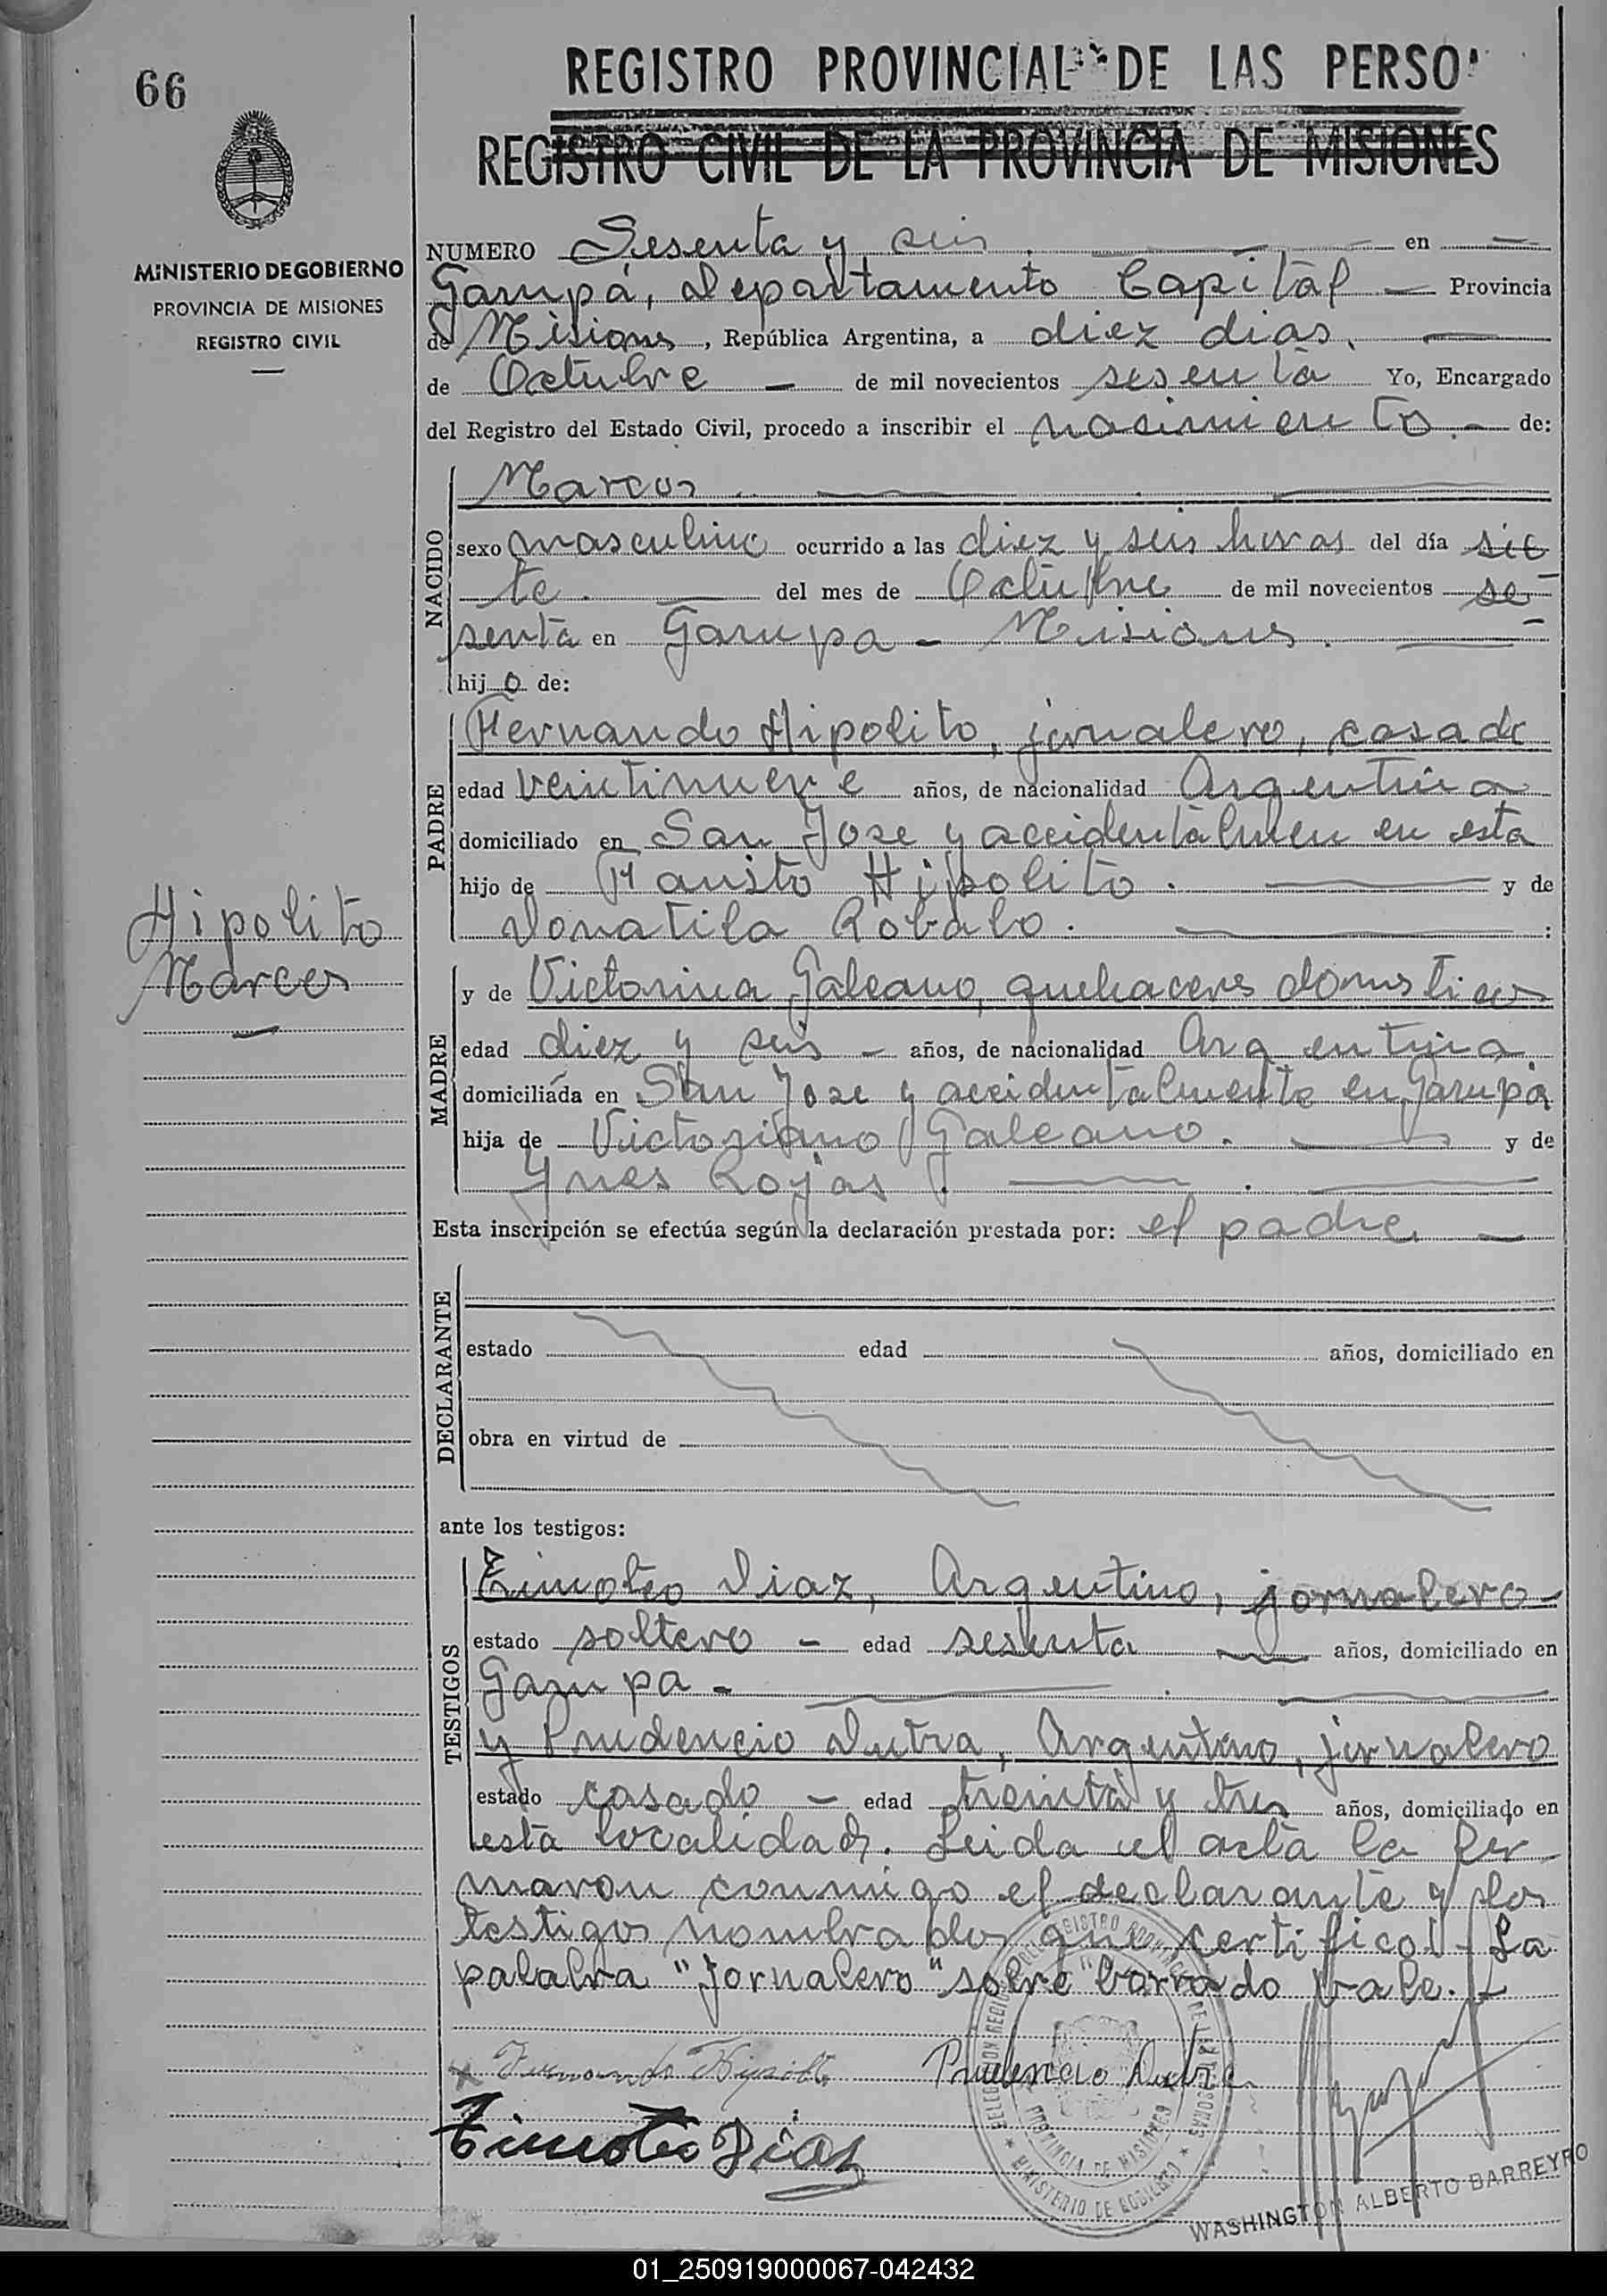 66
REGISTRO PROVINCIAL DE LAS PERSO
REGISTRO CIVIL DE LA PROVINCIA DE MISIONES
MINISTERIO DE GOBIERNO
PROVINCIA DE MISIONES
REGISTRO CIVIL
NUMERO Sesenta y seis en
Garupá, Departamento Capital Provincia
de Misiones, República Argentina, a diez dias,
de Octubre de mil novecientos sesenta Yo, Encargado
del Registro del Estado Civil, procedo a inscribir el nasimiento.- de:
NACIDO
Marcos
sexo masculino ocurrido a las diez y seis horas del día sie
te. del mes de Octubre de mil novecientos se-
senta en Garupa - Misiones.
hijo de:
PADRE
Fernando Hipolito, jornalero, casado
edad veintinueve años, de nacionalidad Argentina
domiciliado en San Jose y accidentalmen en esta
hijo de Fausto Hipolito. y de
Donatila Robalo. :
Hipolito
Marcos
MADRE
y de Victorina Galeano, quehaceres domesticos
edad diez y seis - años, de nacionalidad Argentina
domiciliada en San Jose y accidentalmente en Garupá
hija de Victoriano Galeano. y de
Ynes Rojas.
Esta inscripción se efectúa según la declaración prestada por: el padre
DECLARANTE
estado edad años, domiciliado en
obra en virtud de
ante los testigos:
TESTIGOS
Timoteo Diaz, Argentino, jornalero-
estado soltero - edad sesenta años, domiciliado en
Garupa -
y Prudencio Dutra, Argentino, jornalero
estado casado - edad treinta y tres años, domiciliado en
esta localidad. Leida el acta la fir
maron conmigo el declarante y los
testigos nombrados que certifico.- La
palabra "Jornalero" sobre borrado vale.-
x Fernando Hipolito Prudencio Dutra
Timoteo Dias
REGISTRO PROVINCIAL DE LAS PERSONAS
PROVINCIA DE MISIONES
MINISTERIO DE GOBIERNO
WASHINGTON ALBERTO BARREYRO
01_250919000067-042432